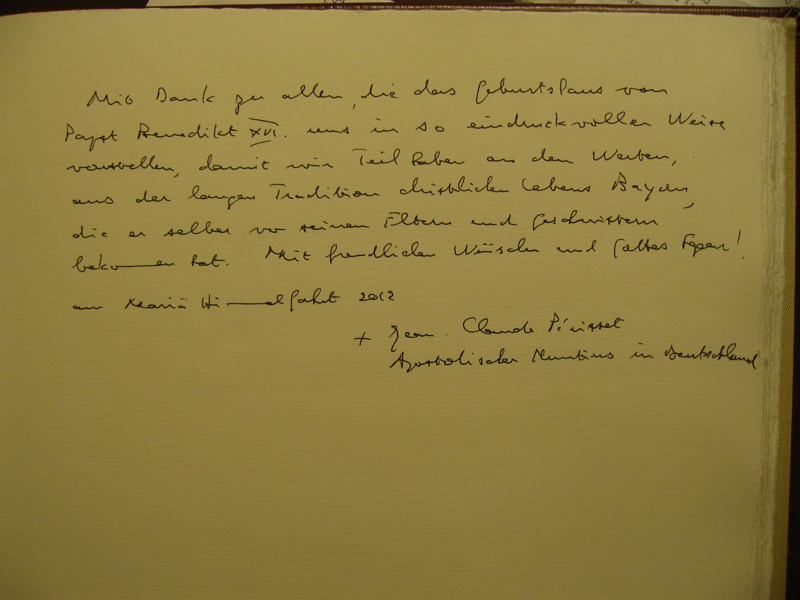 Mit Dank zu allen, die das Geburtshaus von
Papst Benedikt XVI. uns in so eindruckvoller Weise
vorstellen, damit wir Teil haben an den Werten,
aus der langen Tradition christlichen Lebens Bayern,
die er selber von seinen Eltern und Geschwistern
bekommen hat. Mit freundlichen Wünschen und Gottes Segen!
am Mariä Himmelfahrt 2012
+ Jean-Claude Périsset
Apostolischer Nuntius in Deutschland